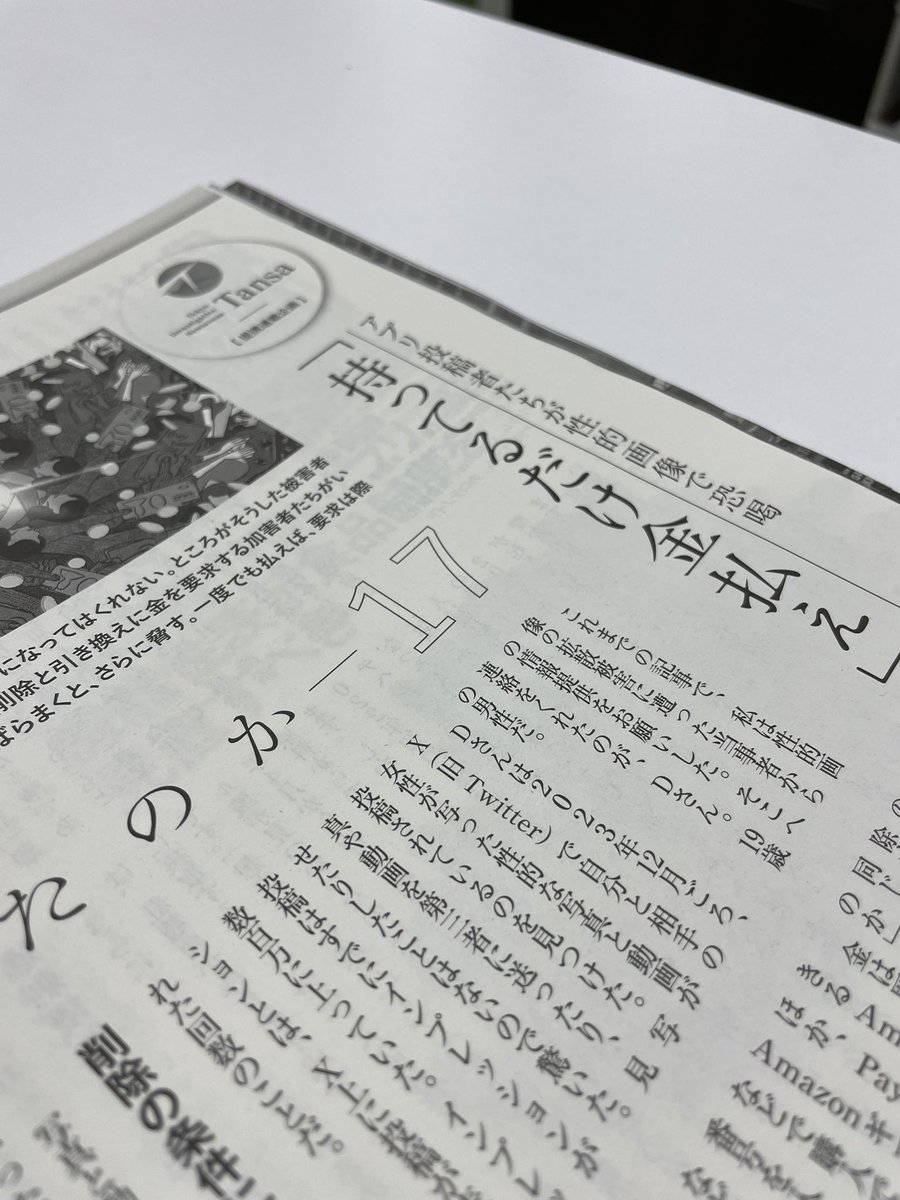 Tansa
アプリ投稿者たちが性的画像で恐喝
「持ってるだけ金払え」
になってはくれない。ところがそうした被害者
削除と引き換えに金を要求する加害者たちがい
ばらまくと、さらに脅す。一度でも払えば、要求は際
たのか—17
これまでの記事で、私は性的画
像の拡散被害に遭った当事者から
の情報提供をお願いした。そこへ
連絡をくれたのが、Dさん。19歳
の男性だ。
Dさんは2023年12月ごろ、
X（旧Twitter）で自分と相手の
女性が写った性的な写真と動画が
投稿されているのを見つけた。写
真や動画を第三者に送ったり、見
せたりしたことはないので驚いた。
投稿はすでにインプレッションが
数百万に上っていた。インプレッ
ションとは、X上に投稿が
れた回数のことだ。
削除の条件
の同じ
のか」
金は
Am
Pay
きる
ほか、
Amazonギ
などで購入で
番号を